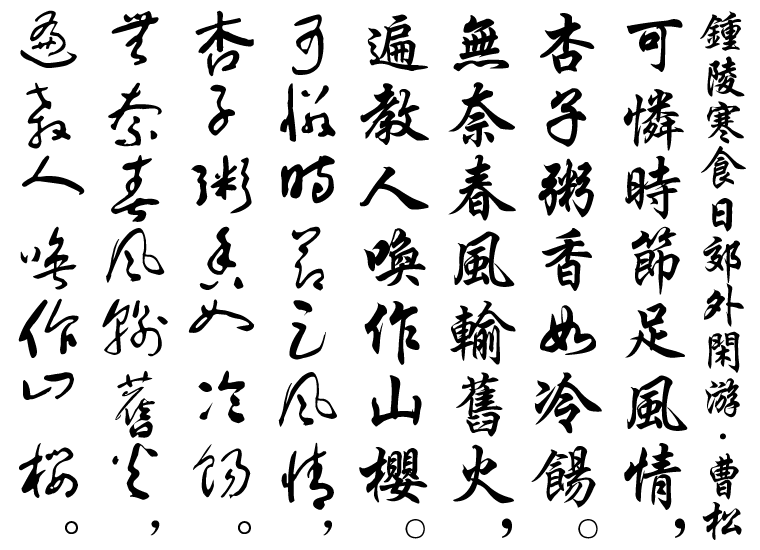 鍾陵寒食日郊外閑游·曹松
可憐時節足風情，
杏子粥香如冷餳。
無奈春風輸舊火，
遍教人喚作山櫻。
可憐時節足風情，
杏子粥香如冷餳。
無奈春風輸舊火，
遍教人喚作山櫻。